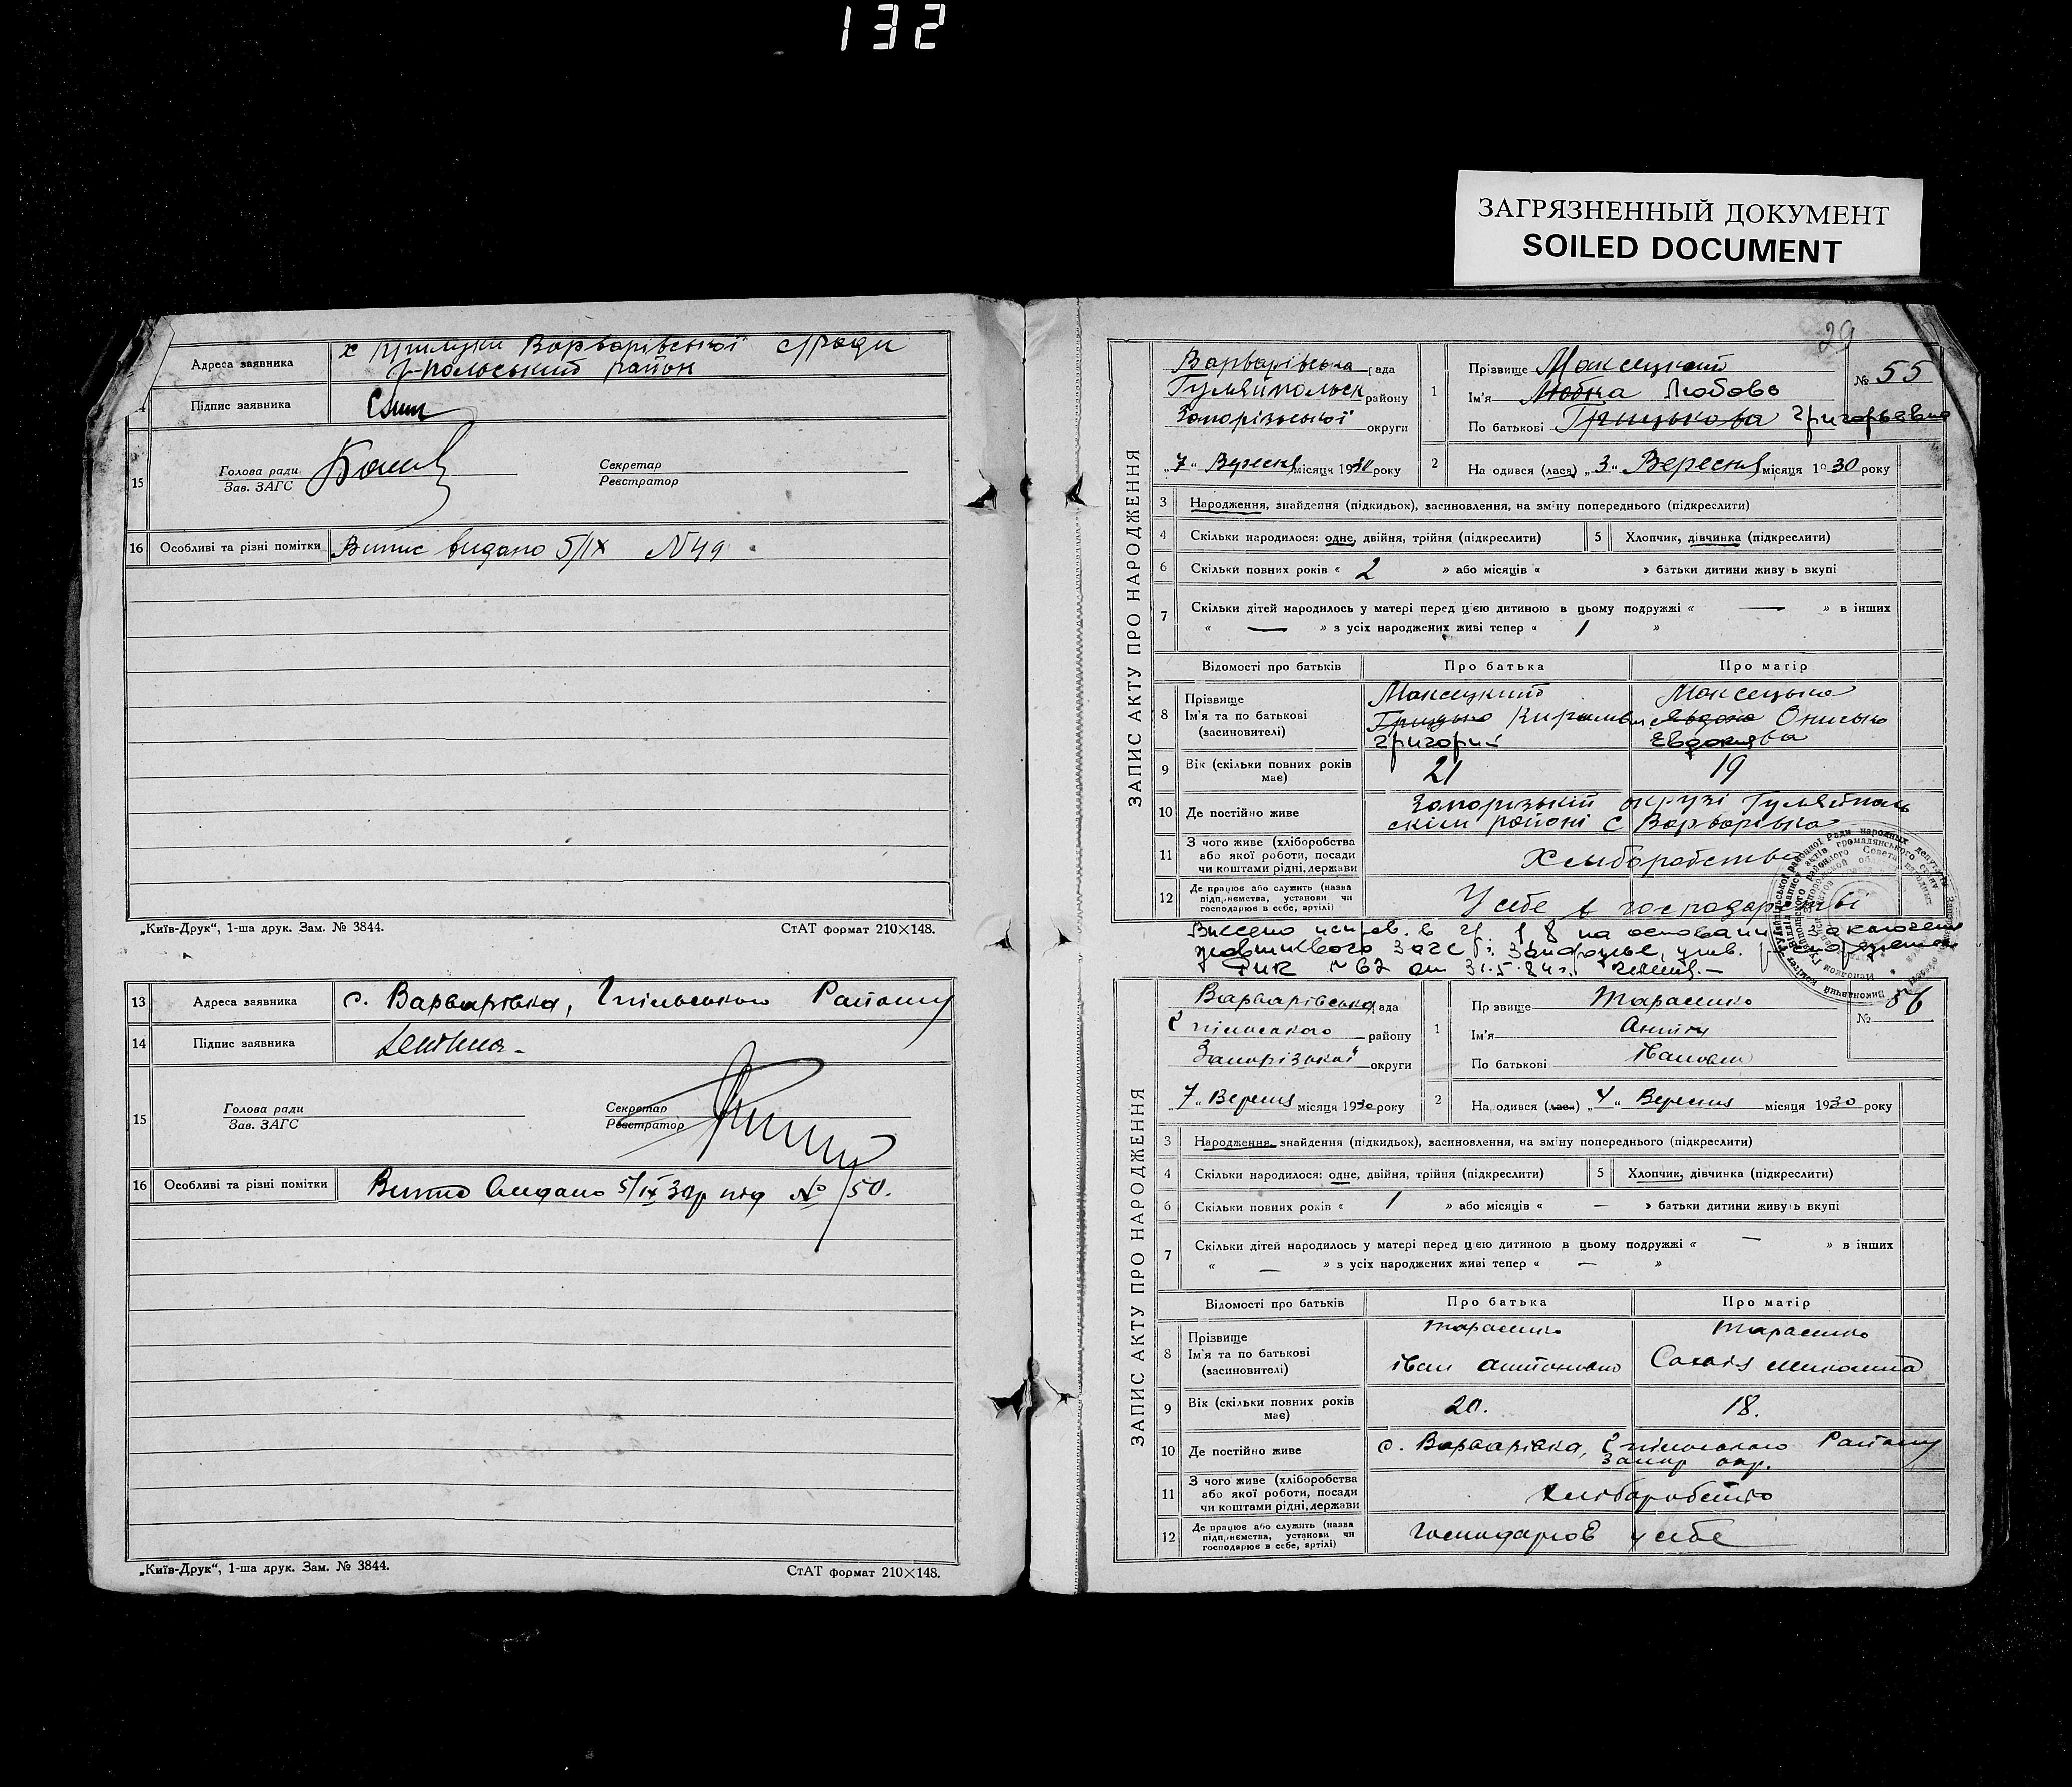 132
ЗАГРЯЗНЕННЫЙ ДОКУМЕНТ
SOILED DOCUMENT
Адреса заявника х Варварівської с/ради
район
Підпис заявника
15 Голова ради Секретар
Зав. ЗАГС Реєстратор
16 Особливі та різні помітки Витис видано 5/IX N 49
„Київ-Друк“, 1-ша друк. Зам. № 3844. СтАТ формат 210×148.
13 Адреса заявника с. Варварівка, Району
14 Підпис заявника
15 Голова ради Секретар
Зав. ЗАГС Реєстратор
16 Особливі та різні помітки видано 5/IX 30р під № 50.
„Київ-Друк“, 1-ша друк. Зам. № 3844. СтАТ формат 210×148.
29
ЗАПИС АКТУ ПРО НАРОДЖЕННЯ
Варварівська рада
Гуляйпольськ району
Запорізської округи
1 Прізвище Максецкий
Ім'я Любка Любовь
По батькові Грицькова Григорьевна
№ 55
„7“ Вересня місяця 1930 року
2 На одився (лася) „3“ Вересня місяця 1930 року
3 Народження, знайдення (підкидьох), засиновлення, на зміну попереднього (підкреслити)
4 Скільки народилося: одне, двійня, трійня (підкреслити) 5 Хлопчик, дівчинка (підкреслити)
6 Скільки повних років « 2 » або місяців « » батьки дитини живу ь вкупі
7 Скільки дітей народилось у матері перед цією дитиною в цьому подружжі « — » в інших
« — » з усіх народжених живі тепер « 1 »
Відомості про батьків Про батька Про матір
8 Прізвище Максецкий Максецька
Ім'я та по батькові Грицько
(засиновителі) Григорий
9 Вік (скільки повних років має) 21 19
10 Де постійно живе Запорізькій окрузі Гуляйполь
скім районі с Варварівка
11 З чого живе (хліборобства
або якої роботи, посади
чи коштами рідні, держави
12 Де працює або служить (назва
підприємства, установи чи
господарює в себе, артілі) У себе в господарстві
испрев. в гр. 1, 8 на основании заключения
№ 62 от 31.5.84 г.
ЗАПИС АКТУ ПРО НАРОДЖЕННЯ
Варварівська рада
району
Запорізської округи
1 Пр звище Тарасенко
Ім'я Антін
По батькові Іванович
№ 56
„7“ Вересня місяця 1930 року
2 На одився (лася) „4“ Вересня місяця 1930 року
3 Народження, знайдення (підкидьох), засиновлення, на зміну попереднього (підкреслити)
4 Скільки народилося: одне, двійня, трійня (підкреслити) 5 Хлопчик, дівчинка (підкреслити)
6 Скільки повних років « 1 » або місяців « — » батьки дитини живуть вкупі
7 Скільки дітей народилось у матері перед цією дитиною в цьому подружжі « — » в інших
« — » з усіх народжених живі тепер « — »
Відомості про батьків Про батька Про матір
8 Прізвище Тарасенко Тарасенко
Ім'я та по батькові Іван
(засиновителі)
9 Вік (скільки повних років має) 20. 18.
10 Де постійно живе с. Варварівка, Району
Запор окр.
11 З чого живе (хліборобства
або якої роботи, посади
чи коштами рідні, держави хліборобство
12 Де працює або служить (назва
підприємства, установи чи
господарює в себе, артілі) у себе